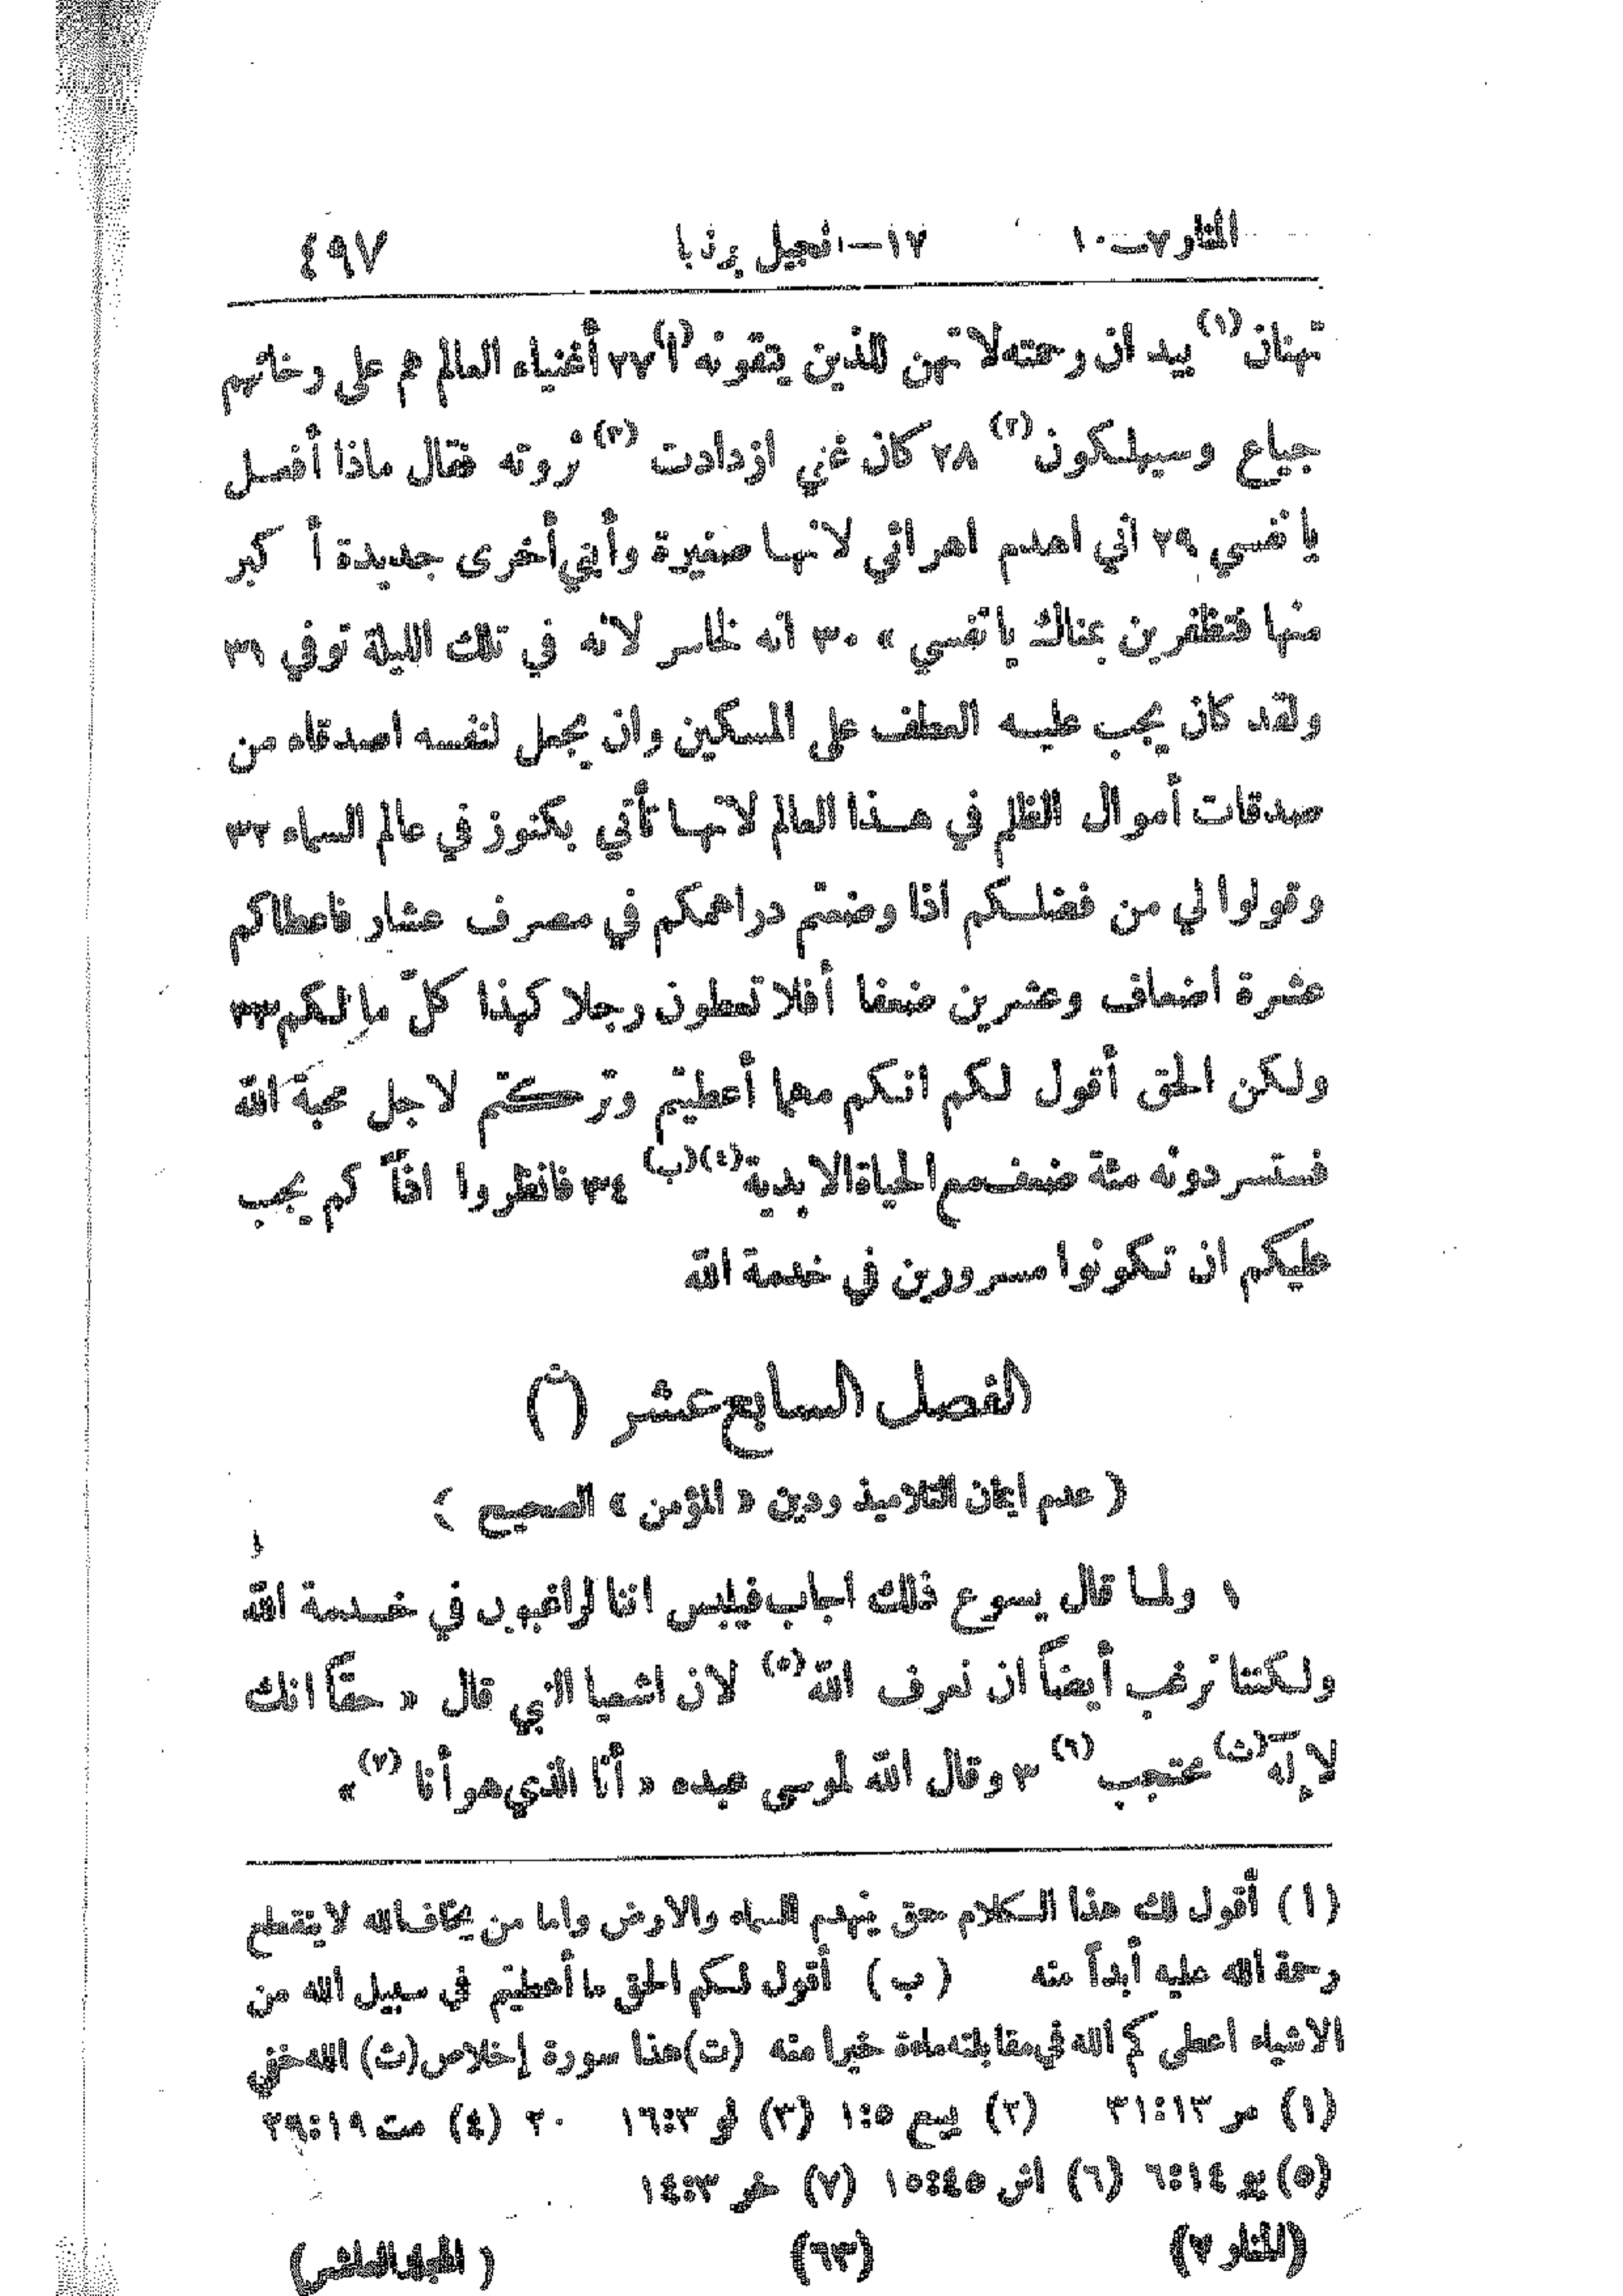 المنار ٧ — ١٠ ١٧ — انجيل برنابا ٤٩٧
تهنان (١) بيد ان رحمته لا تهن للذين يتقونه (ا) ٢٧ أغنياء العالم هم على رخائهم
جياع وسيهلكون (٢) ٢٨ كان غني ازدادت (٣) ثروته فقال ماذا أفعل
يا نفسي ٢٩ اني اهدم اهرائي لانها صغيرة وأبني أخرى جديدة أ كبر
منها فتظفرين بمناك يا نفسي » ٣٠ انه لخاسر لانه في تلك الليلة توفي ٣١
ولقد كان يجب عليه العطف على المسكين وان يجعل لنفسه اصدقاء من
صدقات أموال الظلم في هذا العالم لانها تأتي بكنوز في عالم السماء ٣٢
وقولوا لي من فضلكم اذا وضعتم دراهمكم في مصرف عشار فاعطاكم
عشرة اضعاف وعشرين ضعفا أفلا تعطون رجلا كهذا كلّ ما لكم ٣٣
ولكن الحق أقول لكم انكم مهما أعطيتم وتركتم لاجل محبة الله
فستسردونه مئة ضعف مع الحياة الابدية (٤) (ب) ٣٤ فانظروا اذاً كم يجب
عليكم ان تكونوا مسرورين في خدمة الله
الفصل السابع عشر (ت)
( عدم ايمان التلاميذ ودين « المؤمن » الصحيح )
١ ولما قال يسوع ذلك اجاب فيلبس اننا لراغبون في خدمة الله
ولكننا نرغب أيضاً ان نعرف الله (٥) لان اشعيا النبي قال « حقاً انك
لإلٰه (ث) محتجب (٦) ٣ وقال الله لموسى عبده « أنا الذي هو أنا (٧) »
(ا) أقول لك هذا الكلام حق ينهدم السماء والارض واما من يخاف الله لا ينقطع
رحمة الله عليه أبداً منه (ب) أقول لكم الحق ما أعطيتم في سبيل الله من
الاشياء اعطى كم الله في مقابلته مادة خيرا منه (ت) هذا سورة إخلاص (ث) الله خفي
(١) مر ١٣:٣١ (٢) يع ٥:١ (٣) لو ١٦:٣ ٢٠ (٤) مت ١٩:٢٩
(٥) يو ١٤:٦ (٦) اش ٤٥:١٥ (٧) خر ٣:١٤
(المنار ٧) (٦٣) (المجلد العاشر)